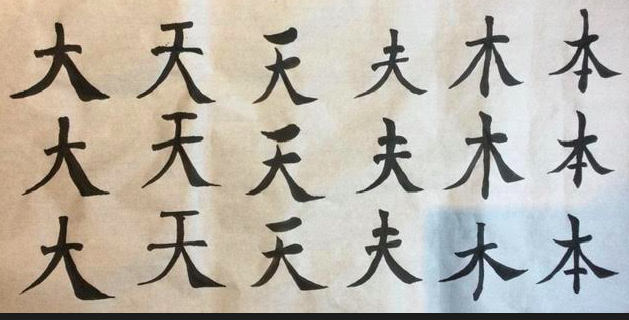 大 天 夭 夫 木 本
大 天 夭 夫 木 本
大 天 夭 夫 木 本